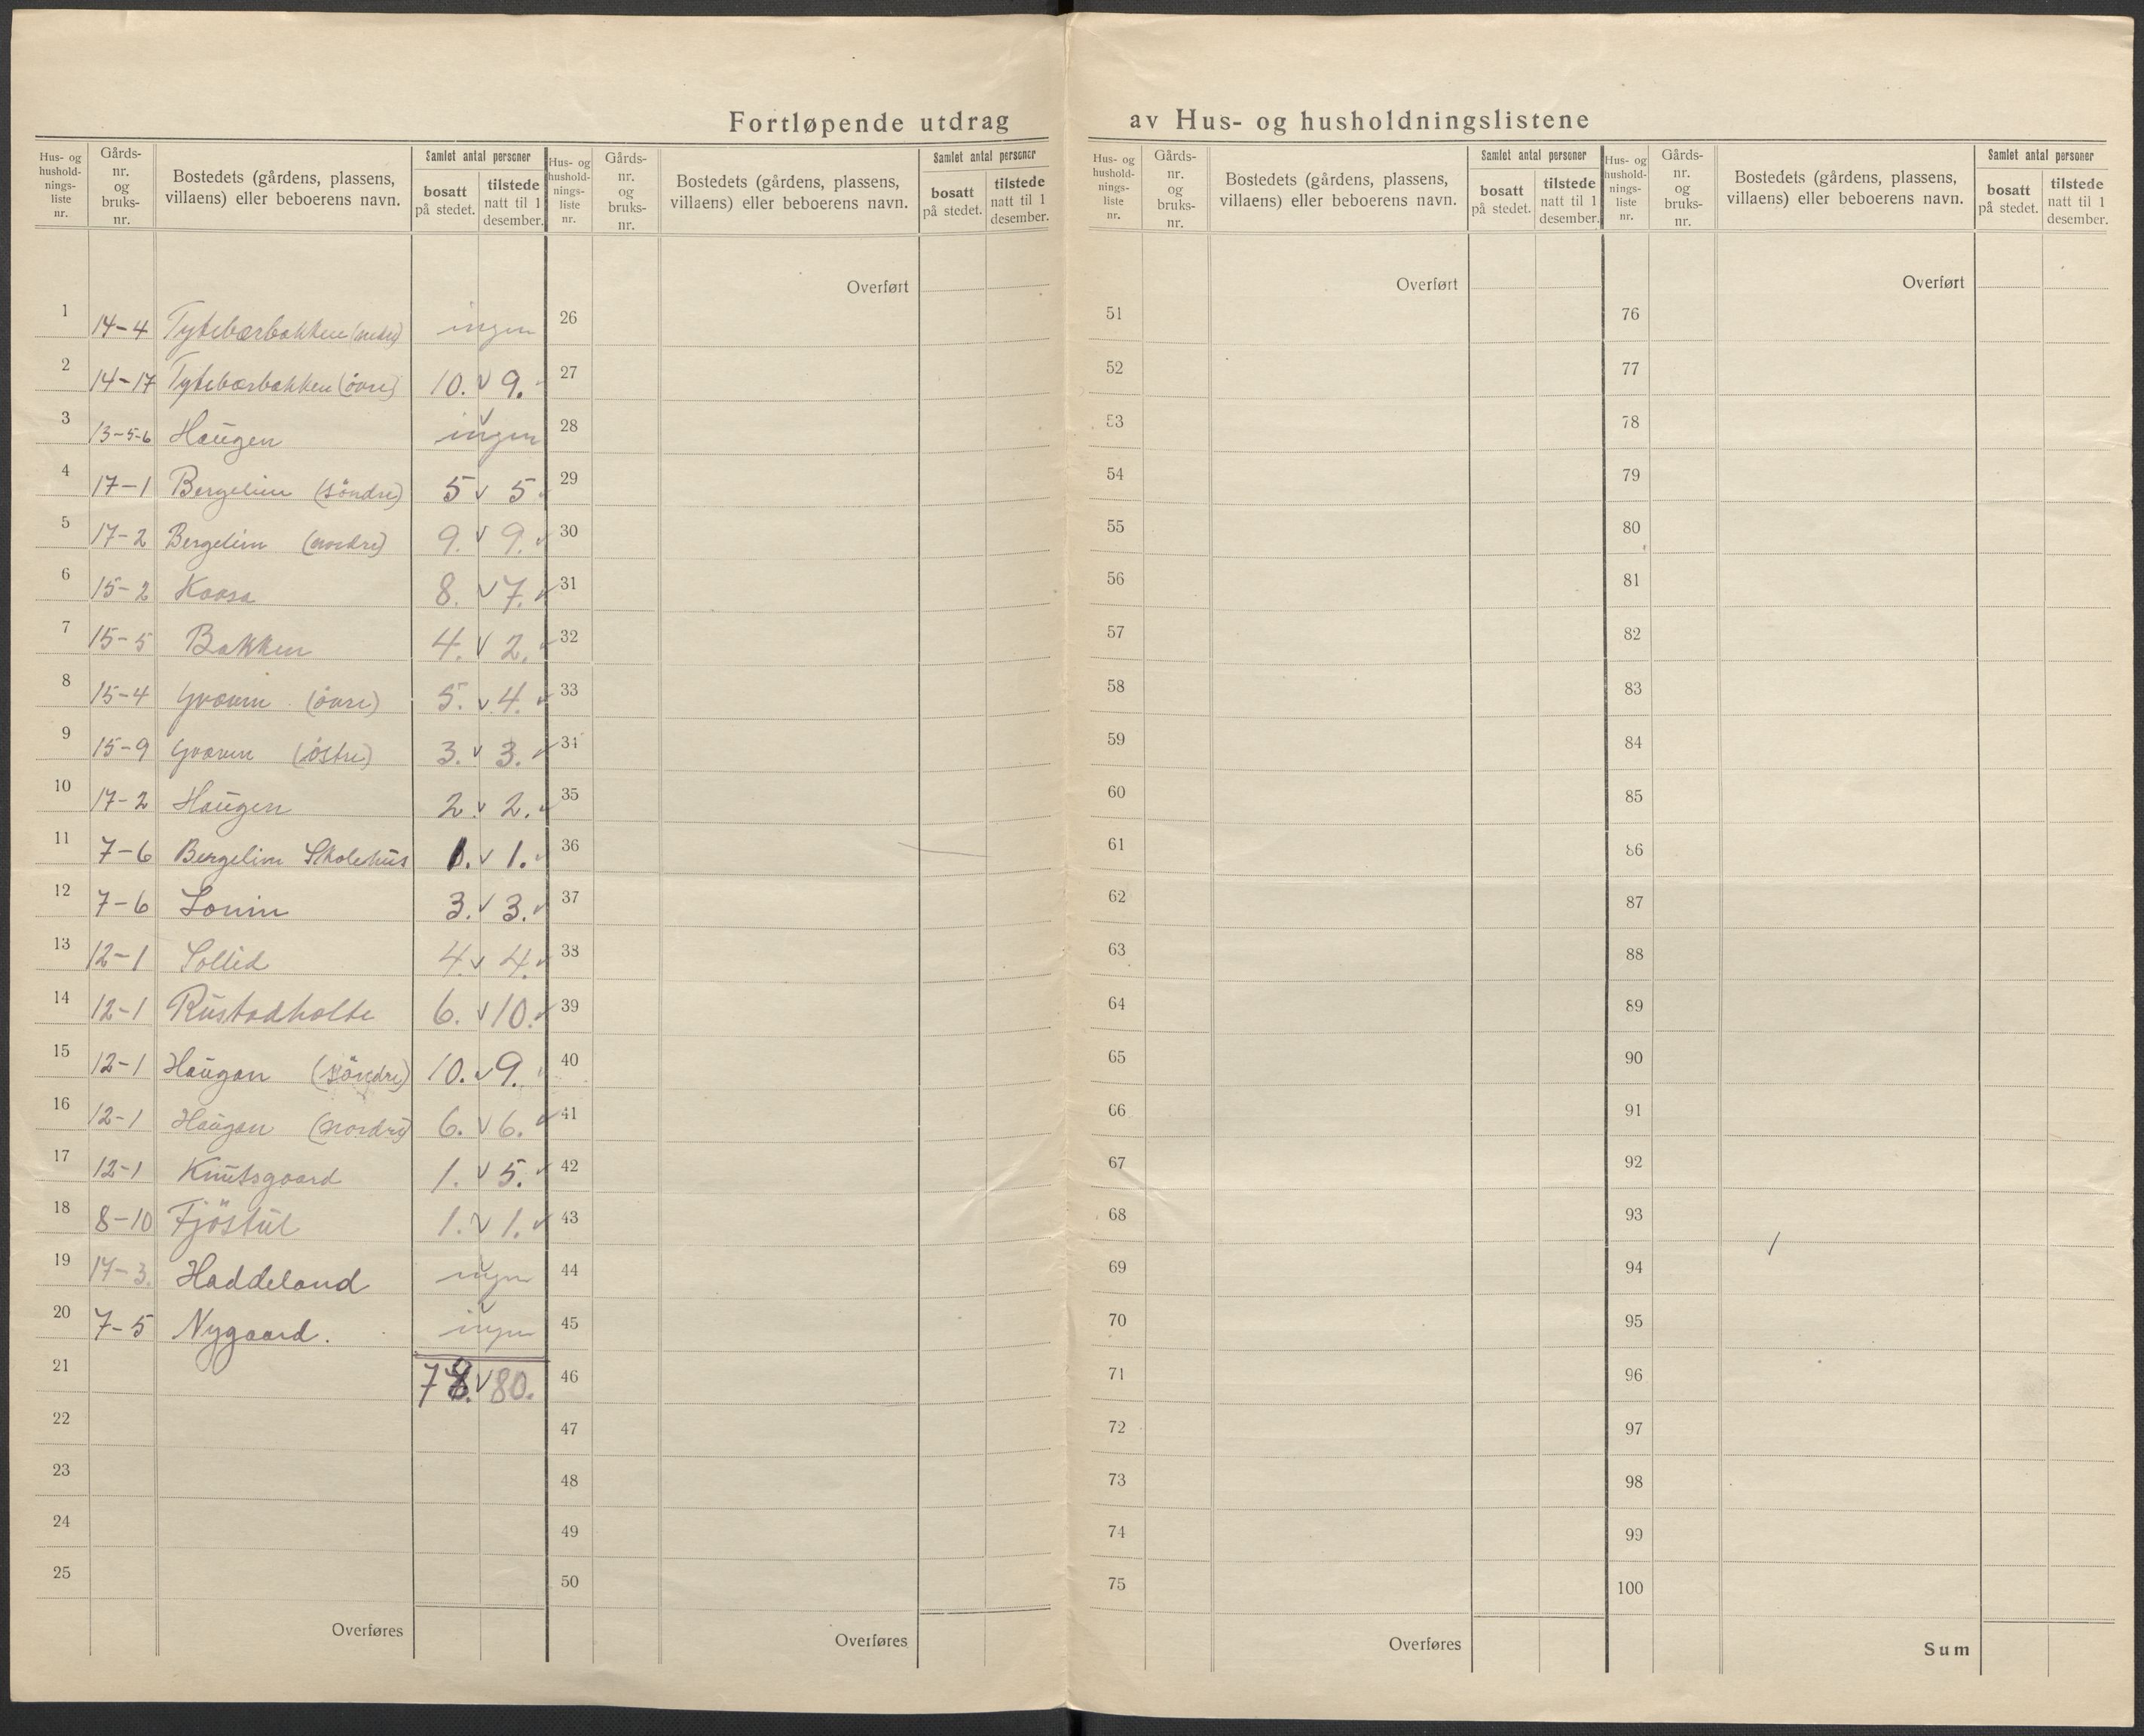 Fortløpende utdrag av Hus- og husholdningslistene
Hus- og hushold-nings-liste nr. Gårds-nr. og bruks-nr. Bostedets (gårdens, plassens, villaens) eller beboerens navn. Samlet antal personer bosatt på stedet. tilstede natt til 1 desember.
1 14-4 Tytebærbakken (nedre) ingen
2 14-17 Tytebærbakken (övre) 10. v 9.
3 13-5-6 Haugen ingen
4 17-1 Bergelim (söndre) 5 v 5.
5 17-2 Bergelim (nordre) 9. v 9. v
6 15-2 Kaasa 8. v 7. v
7 15-5 Bakken 4. v 2. v
8 15-4 Gvaven (övre) 5. v 4. v
9 15-9 Gvaven (östre) 3. v 3. v
10 17-2 Haugen 2. v 2. v
11 7-6 Bergelim Skolehus 1. v 1. v
12 7-6 Lonin 3. v 3. v
13 12-1 Sollid 4. v 4. v
14 12-1 Rustadholte 6. v 10. v
15 12-1 Haugan (söndre) 10. v 9.
16 12-1 Haugan (nordre) 6. v 6. v
17 12-1 Knutsgaard 1. v 5. v
18 8-10 Fjöstul 1. v 1. v
19 17-3. Haddeland ingen
20 7-5 Nygaard. ingen
21 78. v 80.
22
23
24
25
Overføres
Hus- og hushold-nings-liste nr. Gårds-nr. og bruks-nr. Bostedets (gårdens, plassens, villaens) eller beboerens navn. Samlet antal personer bosatt på stedet. tilstede natt til 1 desember.
Overført
26
27
28
29
30
31
32
33
34
35
36
37
38
39
40
41
42
43
44
45
46
47
48
49
50
Overføres
Hus- og hushold-nings-liste nr. Gårds-nr. og bruks-nr. Bostedets (gårdens, plassens, villaens) eller beboerens navn. Samlet antal personer bosatt på stedet. tilstede natt til 1 desember.
Overført
51
52
53
54
55
56
57
58
59
60
61
62
63
64
65
66
67
68
69
70
71
72
73
74
75
Overføres
Hus- og hushold-nings-liste nr. Gårds-nr. og bruks-nr. Bostedets (gårdens, plassens, villaens) eller beboerens navn. Samlet antal personer bosatt på stedet. tilstede natt til 1 desember.
Overført
76
77
78
79
80
81
82
83
84
85
86
87
88
89
90
91
92
93
94
95
96
97
98
99
100
Sum